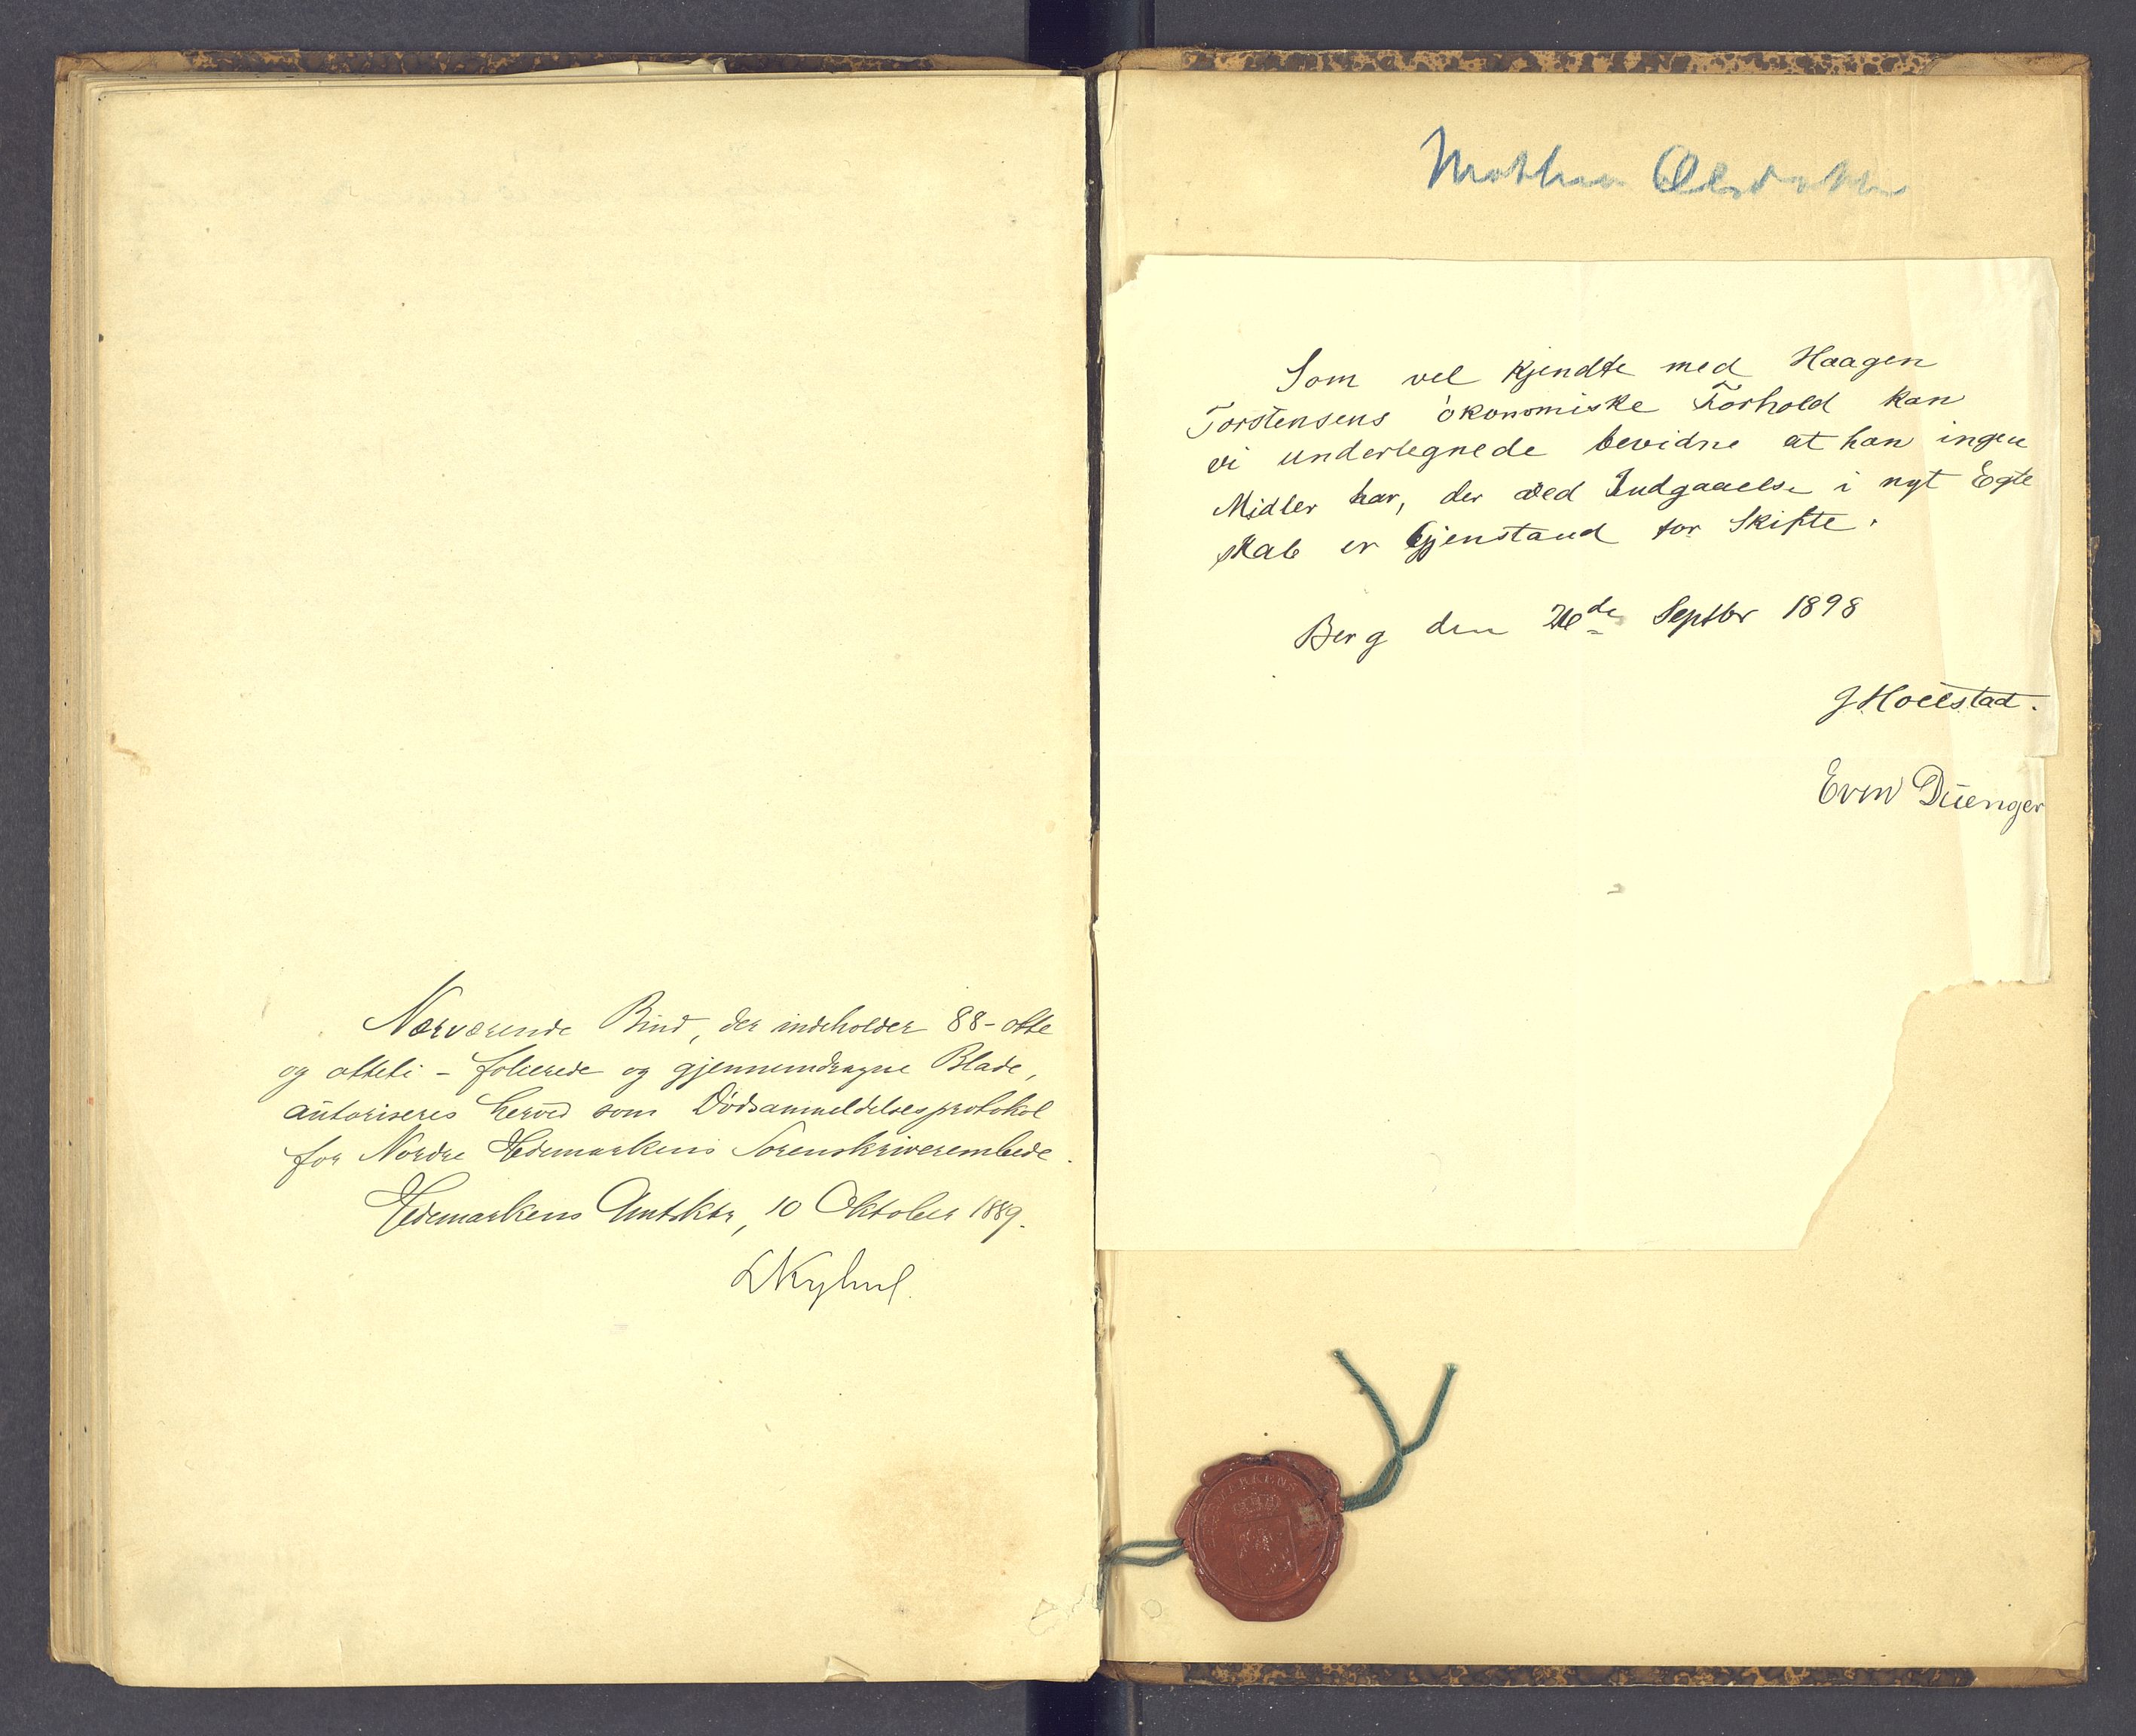 Nærværende Bind, der indeholder 88 - otte
og otteti - folierede og gjennemdragne Blade,
autoriseres herved som Dødsanmeldelsesprotokol
for Nordre Hedemarkens Sorenskriverembede.
Hedemarkens Amtsktr, 10 Oktober 1889.
Som vel kjendte med Haagen
Torstensens økonomiske Forhold kan
vi undertegnede bevidne at han ingen
Midler har, der ved Indgaaelse i nyt Egte
skab er Gjenstand for Skifte.
Berg den de Septbr 1898
J Hoelstad.
Even Duenger